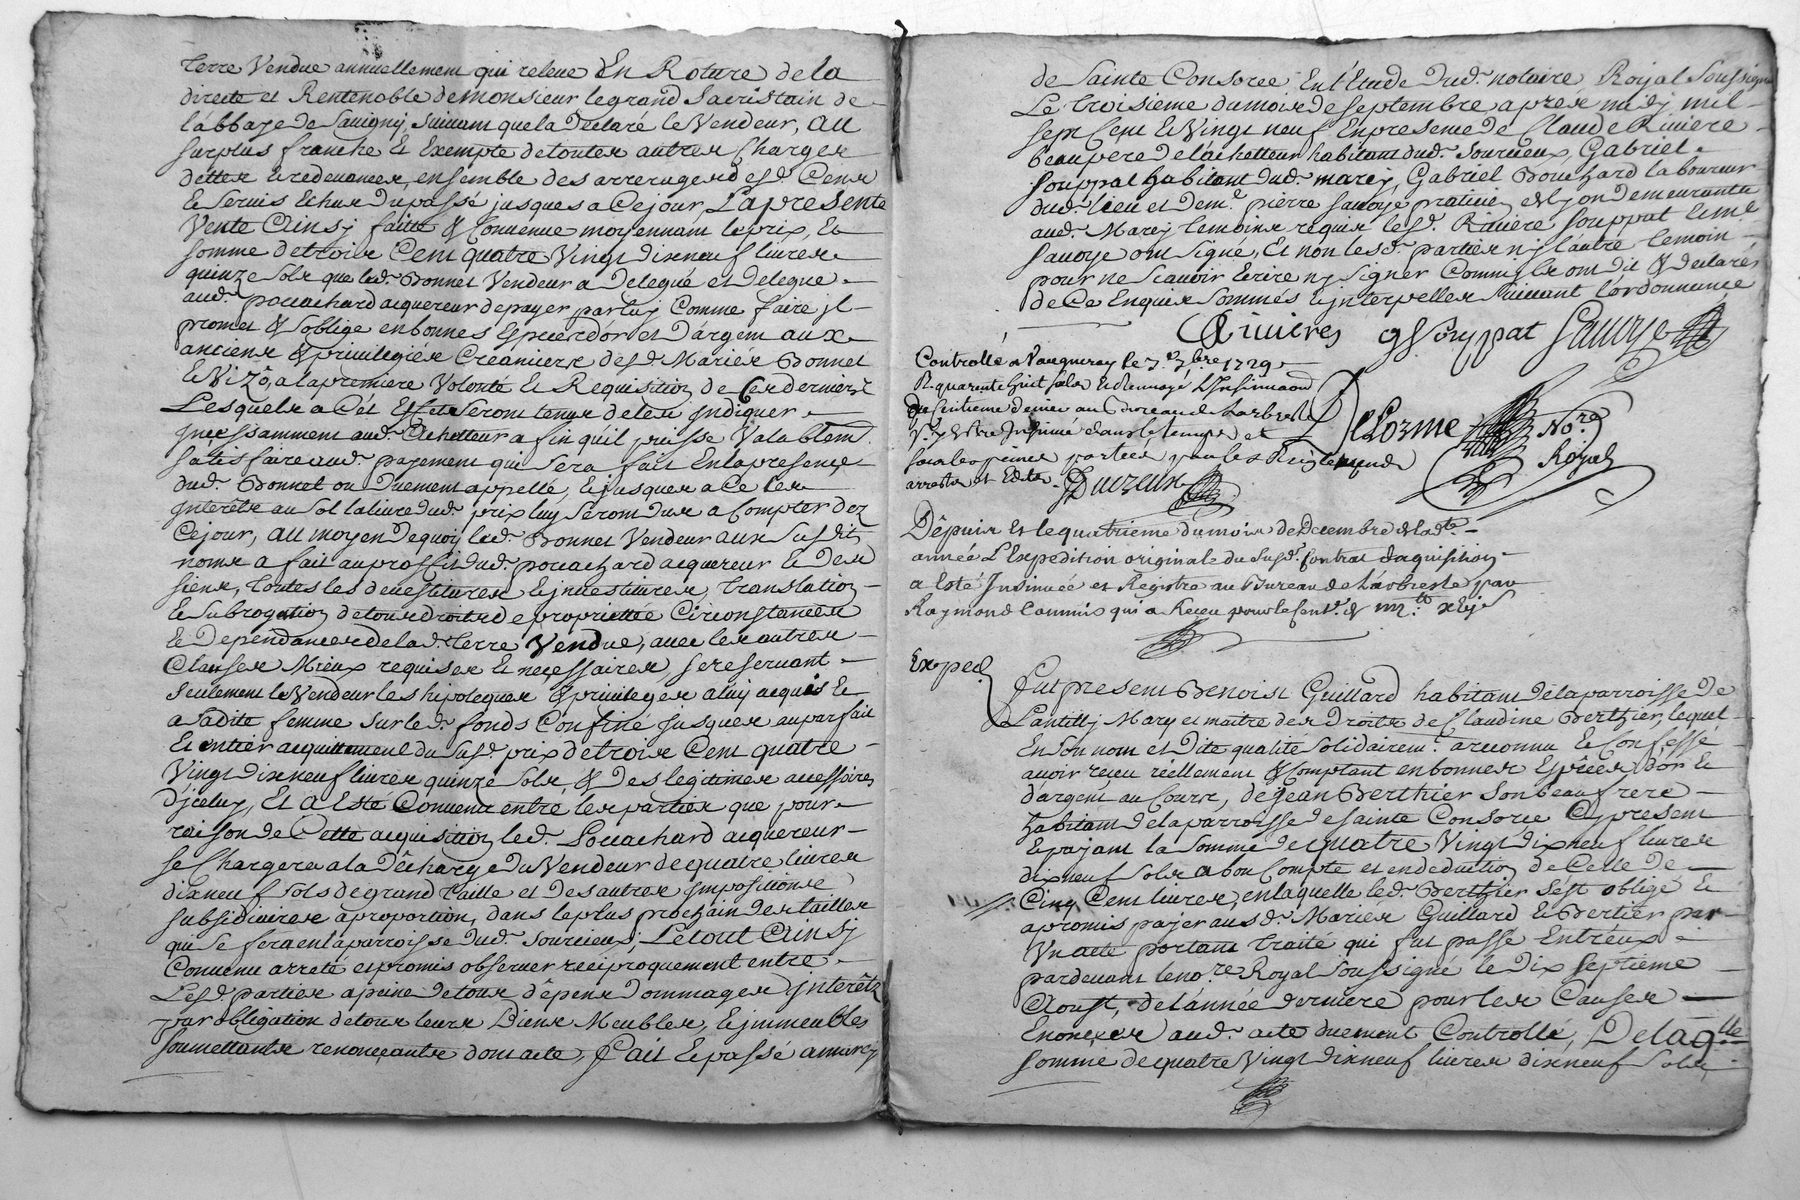 terre Vendue annuellement qui releve En Roture de la
directe et Rentenoble de monsieur le grand Sacristain de
l'abbaye de Savigny, Suivant que la Declaré le Vendeur, Au
surplus franche Et Exempte de toutes autres Charges
dettes et redevances, ensemble des arrerages desd. Cens
& Servis Echus Du passé jusques a Ce jour, La presente
Vente Ainsy faitte & Convenue moyennant le prix, Et
somme de trois Cent quatre Vingt Dixneuf livres
quinze Sols que led. Bonnet Vendeur a Delegué et Delegue
aud. pouachard acquereur de payer par luy Comme faire jl
promet & S'oblige en bonnes Especes d'or et D'argent aux
anciens & privilegiés Creanciers desd. Mariés Bonnet
& Vizô, a la premiere Volonté Et Requisition de Ces derniers
Lesquels a Cét Effet Seront tenus de les jndiquer
jncessamment aud. Achetteur afin qu'il puisse Valablemt.
satisfaire aud. payement qui Sera fait En la presence
dud. Bonnet ou Duement appellé, & jusques a Ce les
jnterêts au Sol la livre dud. prix luy Seront Dus a Compter dez
Ce jour, Au moyen De quoy led. Bonnet Vendeur aux Susdits
noms a fait au proffit dud. pouachard acquereur & Des
siens, toutes les devestitures & jnvestitures, translation
& Subrogation de tous droits de proprietté Circonstances
& Dependances de lad. terre Vendue, avec les autres
Clauses Mieux requises & necessaires se reservant
seulement le Vendeur les hipoteques & privileges a luy acquis &
a Sadite femme Sur led. fonds Confiné jusques au parfait
Et entier acquittement du Susd. prix de trois Cent quatre
Vingt Dixneuf livres quinze Sols, & Des legitimes accessoires
D'jceluy, Et A Esté Convenu entre les parties que pour
raison de Cette acquisition led. Pouachard acquereur
se Chargera a la Décharge Du Vendeur de quatre livres
dixneuf Sols de grand taille et Des autres jmpositions
subsidiaires a proportion, dans le plus prochain des tailles
qui Se fera en la parroisse Dud. Sourcieux, Le tout Ainsj
Convenu arreté et promis observer reciproquement entre
Lesd. parties a peine de tous dêpens Dommages jnterêts
par obligation de tous leurs Biens Meubles, & jmmeubles
soumettants renonçants dont acte, Fait & passé a marcy
de Sainte Consorce En l'Etude Dud. notaire, Royal Soussigné
Le troisieme du mois de Septembre aprés midj mil
sept Cent & Vingt neuf En presence De Claude Riviere
beaupere de l'achetteur habitant dud. Sourcieux, Gabriel
Souppat habitant Dud. marcy, Gabriel Bouchard laboureur
dud. lieu et Dem. pierre Savoye praticien es lyon demeurants
aud. Marcy temoins requis lesd. Riviere Souppat & me.
Savoye ont signé, Et non lesd. parties ny l'autre temoin
pour ne Scavoir Ecrire ny Signer Comme jls ont Dit & Declarés
de Ce Enquis Sommés & jnterpellés Suivant l'ordonnance
Rivieres g Souppat Savoye
Controllé a Vaugneray le 7e. 7bre. 1729
R. quarente huit sols Et Renvoyé L'Insinuaon
Du Centieme denier au Bureau de Larbresle
P. y Etre Insinué dans le temps et
sous les peines portées par les Reiglements
arrests et Edits. Duizeux
DeLorme Nore.
Royal
Dêpuis Et le quatrieme du mois de Decembre de lade.
année L'Expedition originale du Susd. Contrat daquisition
a Esté Insinuée et Registre au Bureau de Larbresle par
Raymond Commis qui a Receu pour le Cent.
Exped.
Fut present Benoist Guillard habitant de la parroisse De
Lantilly Mary et maitre des Droits de Claudine Berthier, lequel
En Son nom et Dite qualité Solidairemt. a reconnu & Confessé
avoir reçeu réellement & Comptant en bonnes Espêces D'or &
d'argent au Cours, de Jean Berthier Son beau frere
habitant de la parroisse de Sainte Consorce Cy present
& payant la Somme de quatre Vingt Dixneuf livres
dixneuf Sols a bon Compte et en deduction de Celle De
Cinq Cent livres, en laquelle led. Berthier S'est obligé &
a promis payer ausd. Mariés Guillard & Bertier par
Un acte portant traité qui fut passé Entréux
pardevant le nore. Royal Soussigné le Dix Septieme
Aoust, de l'année derniere pour les Causes
Enoncées aud. acte duement Controllé, De laqlle.
somme de quatre Vingt Dixneuf livres dixneuf Sols